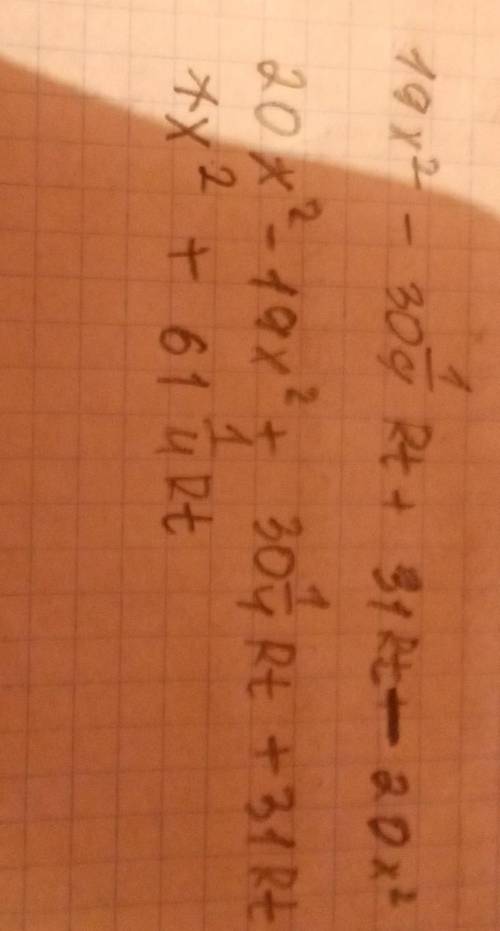 19x² - 30 1/4 Rt + 31Rt - 20x²
20x² - 19x² + 30 1/4 Rt + 31Rt
xx² + 61 1/4 Rt